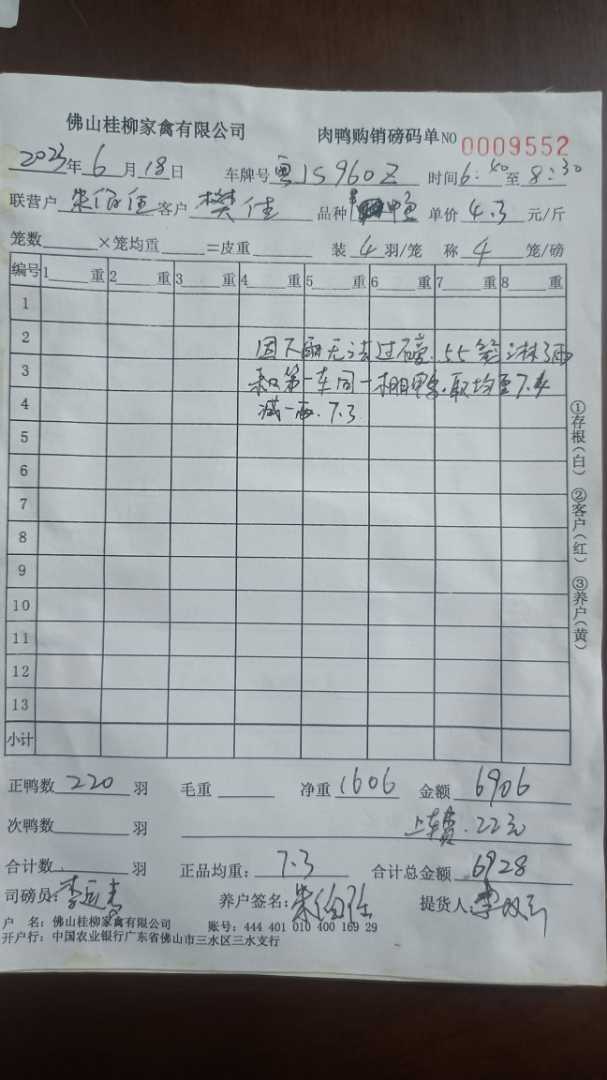 佛山桂柳家禽有限公司 肉鸭购销磅码单NO 0009552
2023年6月18日 车牌号 粤JS960Z 时间6:50至8:30
联营户 客户 樊佳 品种 鸭 单价4.3元/斤
笼数 ×笼均重 =皮重 装4羽/笼 称4笼/磅
编号 1 重 2 重 3 重 4 重 5 重 6 重 7 重 8 重
1
2
因下雨无法过磅.55笼淋了雨
3
和第一车同一棚鸭,取均重7.4
4
减一两.7.3
5
6
7
8
9
10
11
12
13
小计
①存根(白) ②客户(红) ③养户(黄)
正鸭数220羽 毛重 净重1606 金额6906
次鸭数 羽 上车费.22元
合计数 羽 正品均重:7.3 合计总金额6928
司磅员: 养户签名: 提货人
户 名:佛山桂柳家禽有限公司 账号:444 401 010 400 169 29
开户行:中国农业银行广东省佛山市三水区三水支行